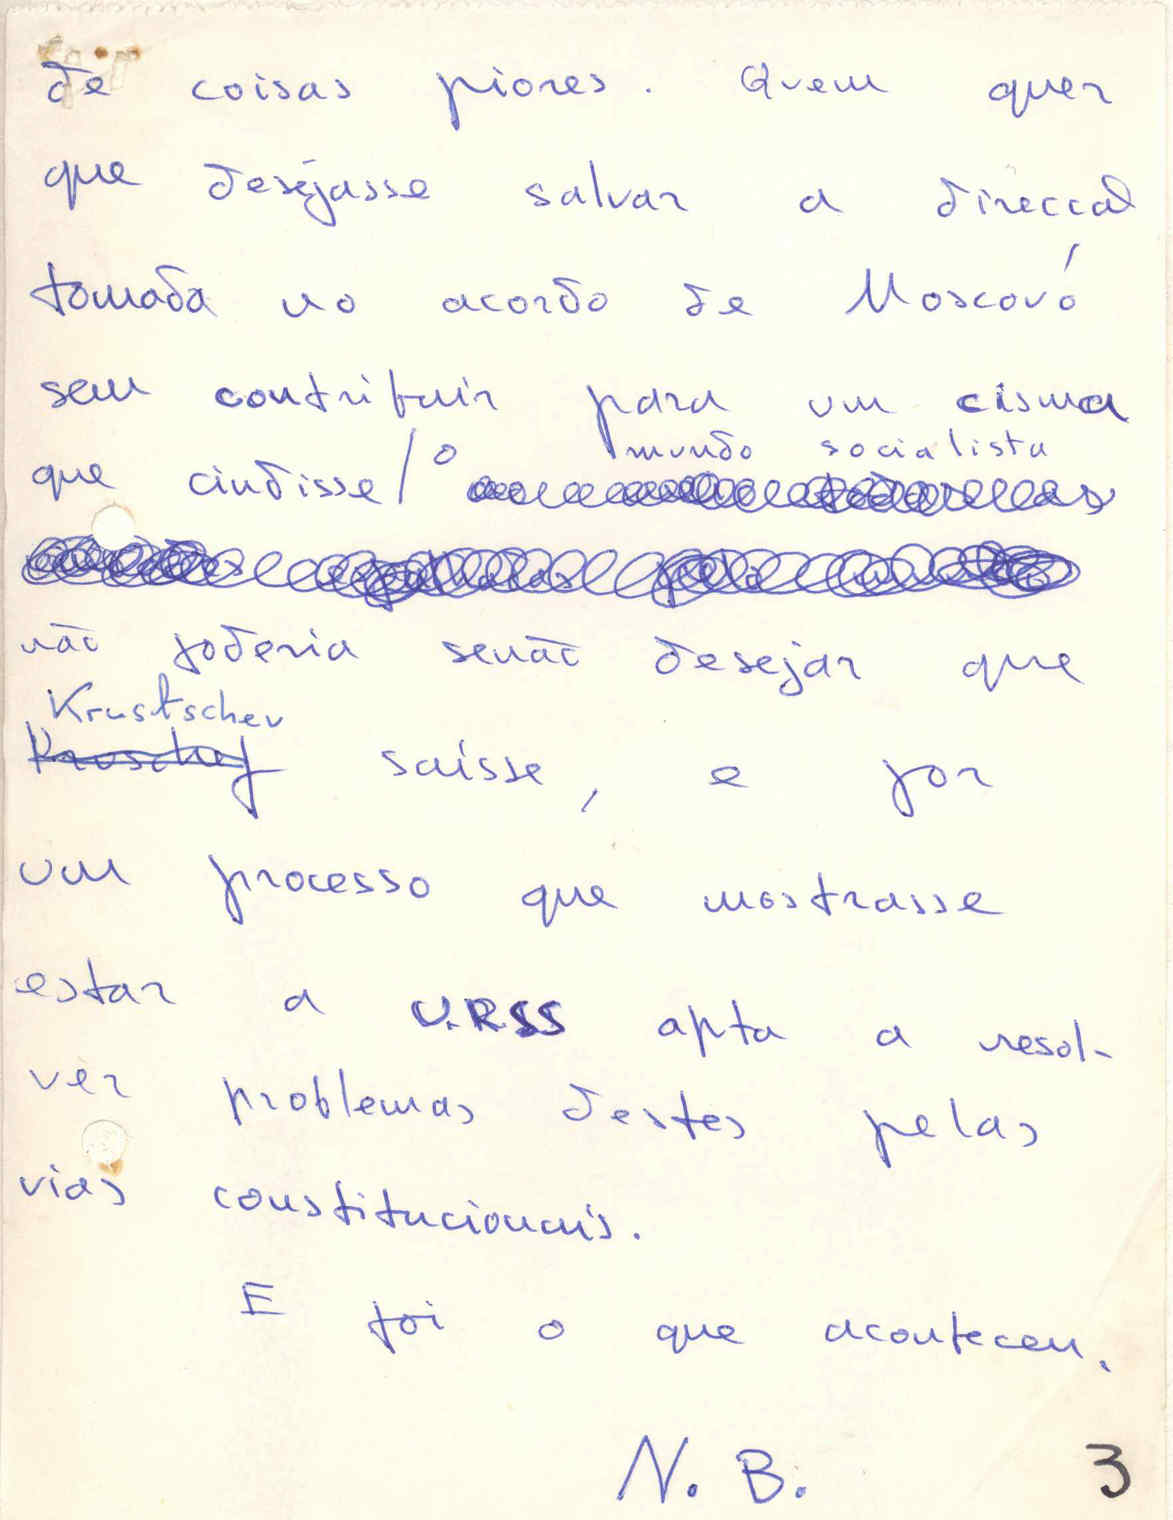 de coisas piores. Quem quer
que desejasse salvar a direcção
tomada no acordo de Moscovó
sem contribuir para um cisma
que cindisse / o mundo socialista
não poderia senão desejar que
Krustschev
saísse, e por
um processo que mostrasse
estar a U.R.S.S apta a resol-
ver problemas destes pelas
vias constitucionais.
E foi o que aconteceu.
N. B.
3